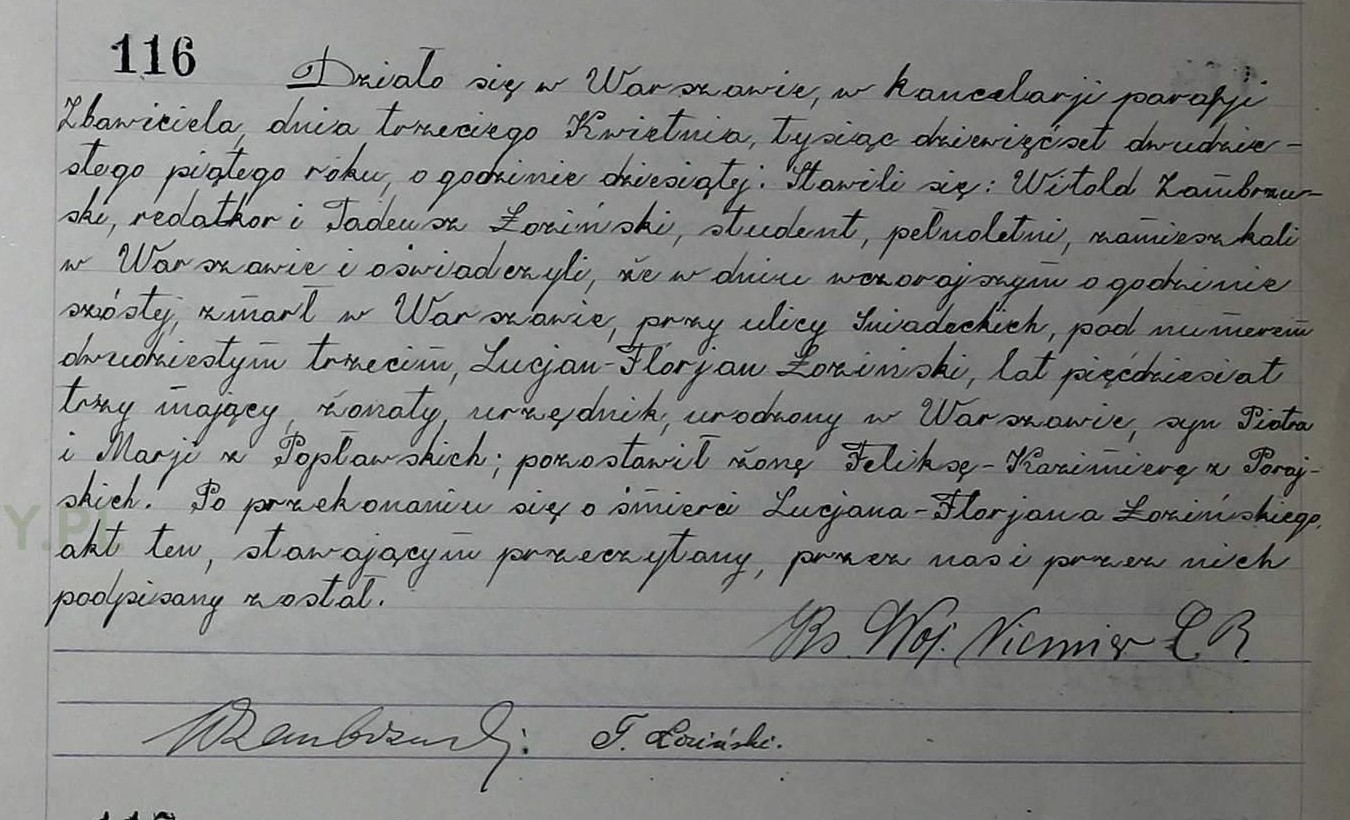 116
Działo się w Warszawie, w kancelarji parafji
Zbawiciela, dnia trzeciego Kwietnia, tysiąc dziewięćset dwudzie-
stego piątego roku, o godzinie dziesiątej: Stawili się: Witold Zambrzu-
ski, redatkor i Tadeusz Łoziński, student, pełnoletni, zamieszkali
w Warszawie i oświadczyli, że w dniu wczorajszym o godzinie
szóstej, zmarł w Warszawie, przy ulicy Śniadeckich, pod numerem
dwudziestym trzecim, Lucjan-Florjan Łoziński, lat pięćdziesiat
trzy mający, żonaty, urzędnik, urodzony w Warszawie, syn Piotra
i Marji z Popławskich; pozostawił żonę Feliksę-Kazimierę z Poraj-
skich. Po przekonaniu się o śmierci Lucjana-Florjana Łozińskiego,
akt ten, stawającym przeczytany, przez nas i przez nich
podpisany został.
Ks. Woj. Niemier
T. Łoziński.
Y.PL